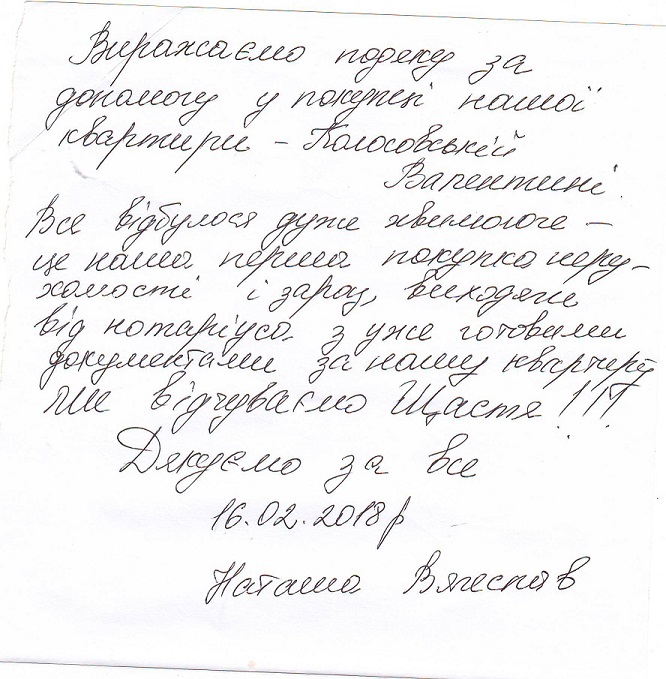 Виражаємо подяку за
допомогу у покупці нашої
квартири – Колосовській
Валентині.
Все відбулося дуже хвилююче –
це наша перша покупка неру-
хомості і зараз, виходячи
від нотаріуса з уже готовими
документами за нашу квартиру
ми відчуваємо Щастя!!!
Дякуємо за все
16.02.2018р
Наташа Вячеслав